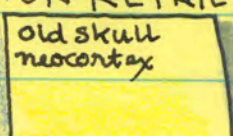 old skull
neocortex